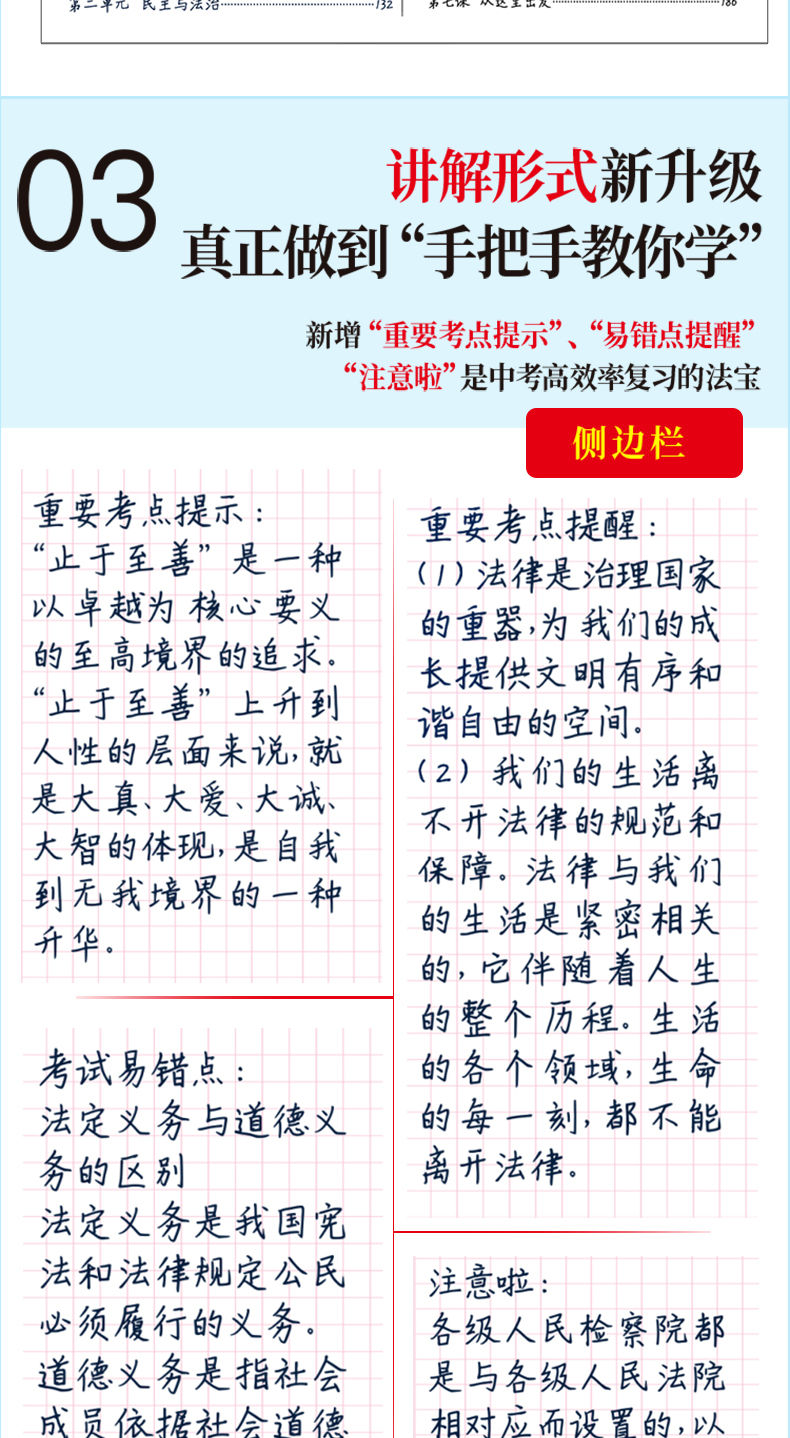 第二单元 民主与法治 132
第七课 从这里出发 186
03
讲解形式新升级
真正做到“手把手教你学”
新增“重要考点提示”、“易错点提醒”
“注意啦”是中考高效率复习的法宝
侧边栏
重要考点提示：
“止于至善”是一种
以卓越为核心要义
的至高境界的追求。
“止于至善”上升到
人性的层面来说，就
是大真、大爱、大诚、
大智的体现，是自我
到无我境界的一种
升华。
考试易错点：
法定义务与道德义
务的区别
法定义务是我国宪
法和法律规定公民
必须履行的义务。
道德义务是指社会
成员依据社会道德
重要考点提醒：
（1）法律是治理国家
的重器，为我们的成
长提供文明有序和
谐自由的空间。
（2）我们的生活离
不开法律的规范和
保障。法律与我们
的生活是紧密相关
的，它伴随着人生
的整个历程。生活
的各个领域，生命
的每一刻，都不能
离开法律。
注意啦：
各级人民检察院都
是与各级人民法院
相对应而设置的，以